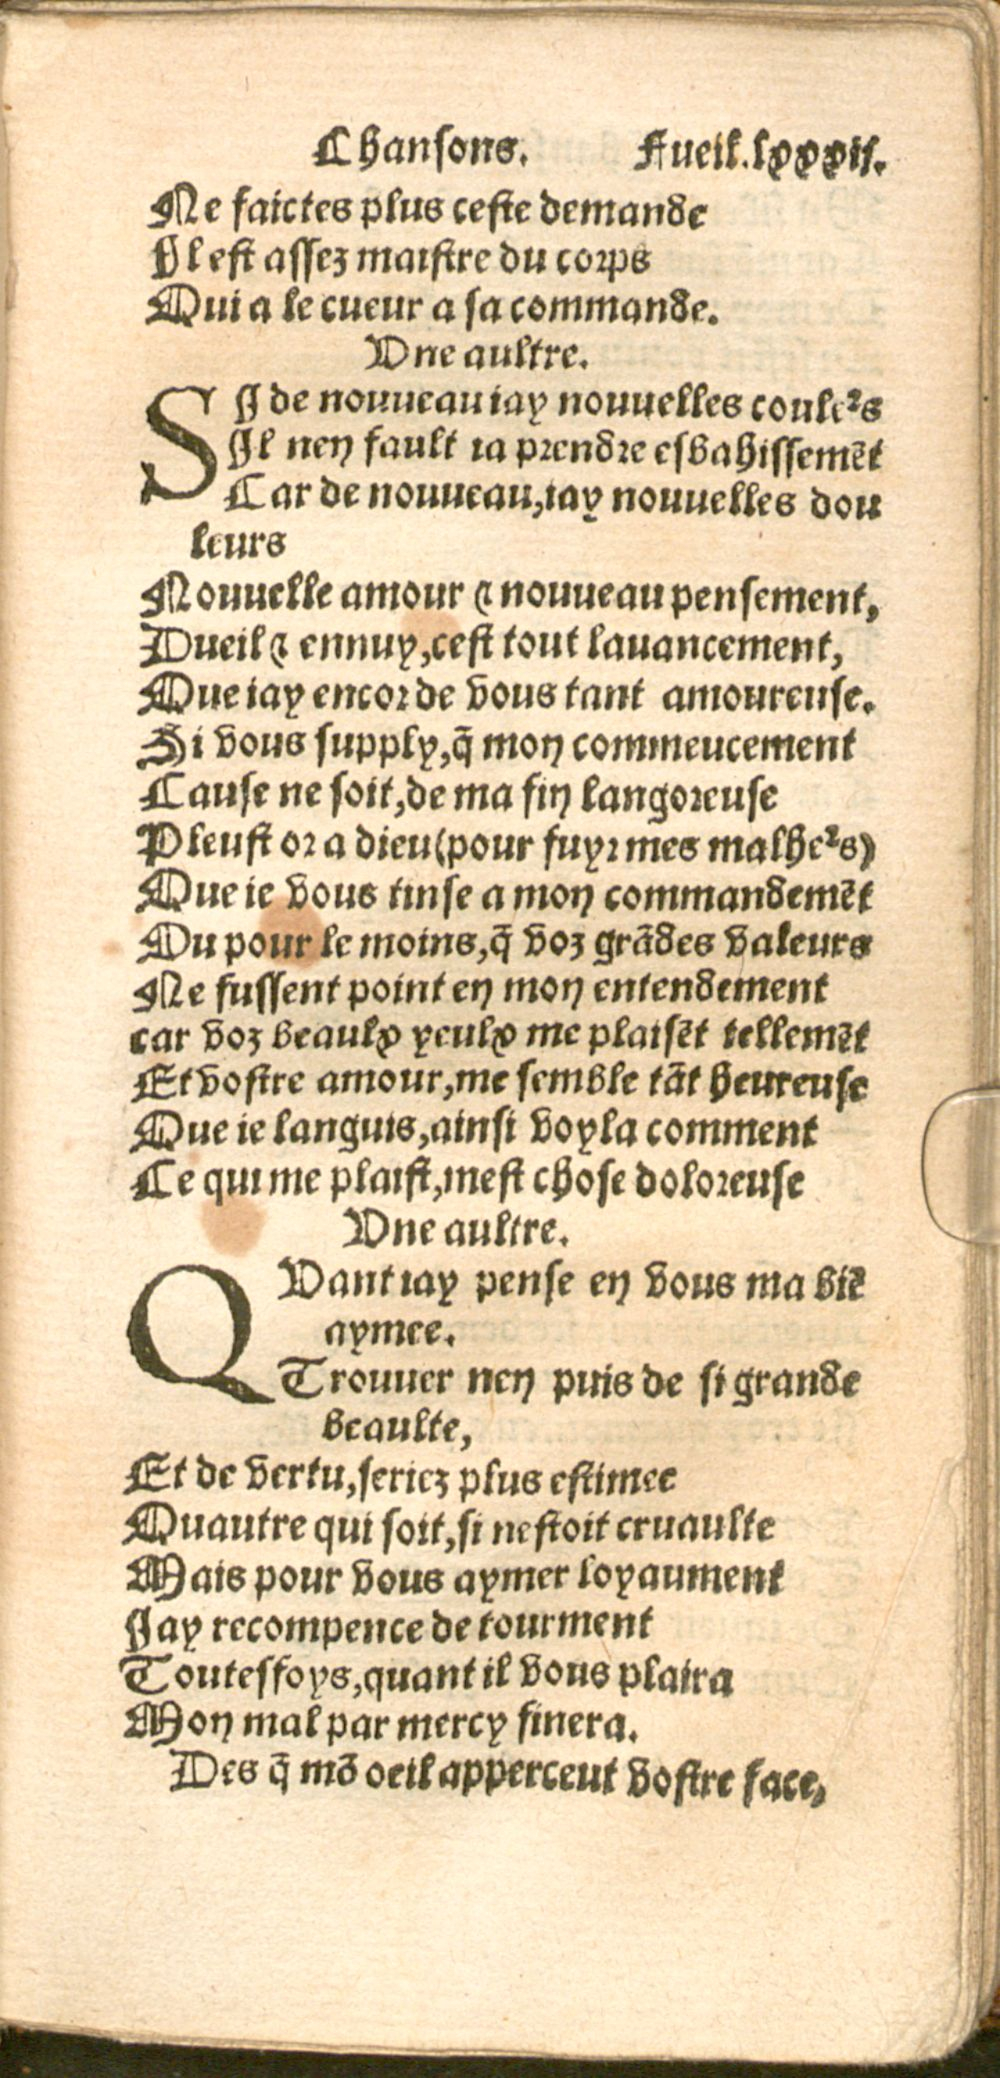 Chansons. Fueil.lxxxii.
Ne faictes plus ceste demande
Il est assez maistre du corps
Qui a le cueur a sa commande.
Vne aultre.
SI de nouueau iay nouuelles coule²s
Il nen fault ia prendre esbahissemẽt
Car de nouueau,iay nouuelles dou
leurs
Nouuelle amour ⁊ nouueau pensement,
Dueil ⁊ ennuy,cest tout lauancement,
Que iay encor de vous tant amoureuse.
Si vous supply,q̃ mon commeucement
Cause ne soit,de ma fin langoreuse
Pleust or a dieu(pour fuyr mes malhe²s)
Que ie vous tinse a mon commandemẽt
Ou pour le moins,q̃ voz grãdes valeurs
Ne fussent point en mon entendement
car voz beaulx yeulx me plaisẽt tellemẽt
Et vostre amour,me semble tãt heureuse
Que ie languis,ainsi voyla comment
Ce qui me plaist,mest chose doloreuse
Vne aultre.
QVant iay pense en vous ma biẽ
aymee.
Trouuer nen puis de si grande
beaulte,
Et de vertu,seriez plus estimee
Quautre qui soit,si nestoit cruaulte
Mais pour vous aymer loyaument
Iay recompence de tourment
Toutesfoys,quant il vous plaira
Mon mal par mercy finera.
Des q̃ mõ oeil apperceut vostre face,